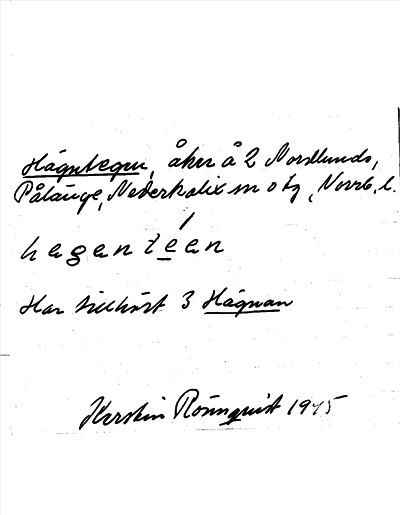 Hägntegen, åker å 2 Nordlunds,
Pålänge, Nederkalix sn o tg, Norrb. l.
hagantéan
Har tillhört 3 Hägnan
Kerstin Rönnqvist 1945